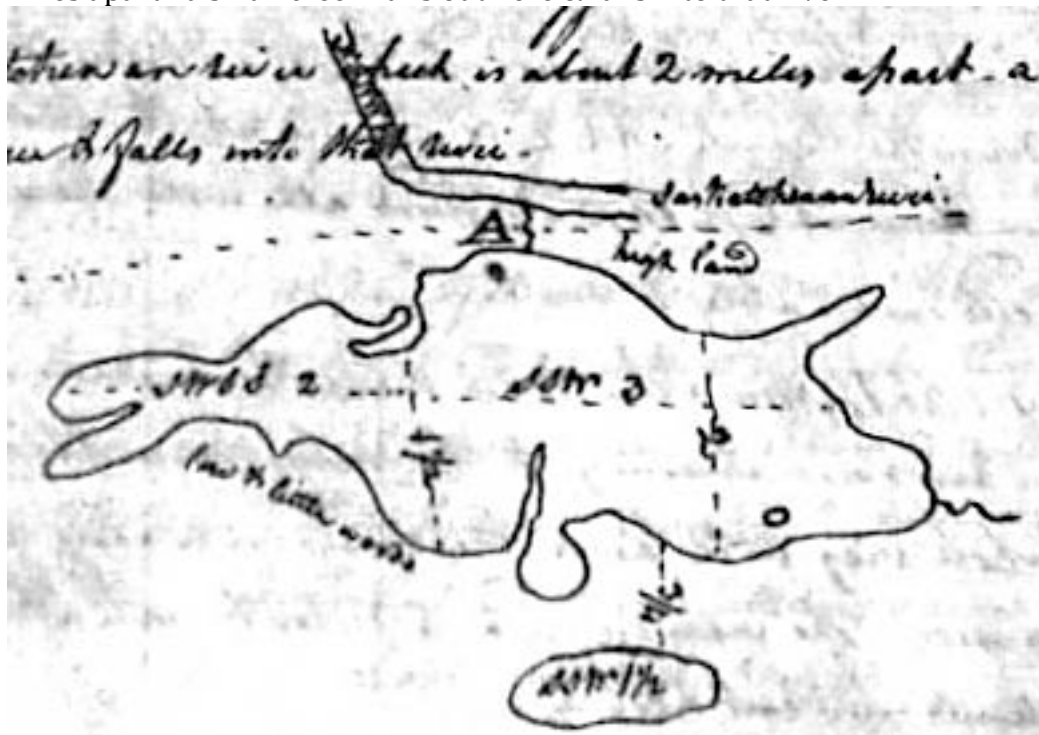 river which is about 2 miles apart - a
& falls into that river -
Saskatchewan river.
A
high land
SWbS 2
SSW 3
1½
low & little woods
SSW 1½